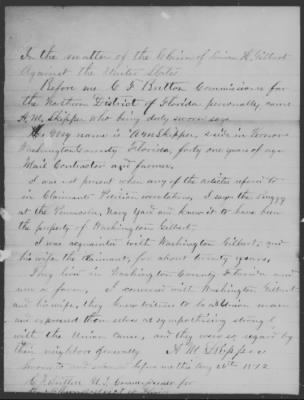 In the matter of the Claim of H. Gilbert
Against the United States
Before me C F Britton Commissioner for
the Northern District of Florida personally came
A M Skipper who being duly sworn says
My name is A M Skipper, reside in Vernon
Washington County Florida, forty one years of age
Mail Contractor and farmer.
I was not present when any of the articles referred to
in Claimants Petition were taken, I saw the buggy
at the Pensacola Navy Yard and knew it to have been
the property of Washington Gilbert.
I was acquainted with Washington Gilbert, and
his wife the claimant, for about twenty years,
I now live in Washington County Florida and
own a farm, I conversed with Washington Gilbert
and his wife, they knew to be a Union man
and expressed themselves as sympathising strongly
with the Union Cause, and they were so regard by
their neighbors generally A M Skipper
Sworn to and before me this Aug 1872
C F Britton U.S. Commissioner for